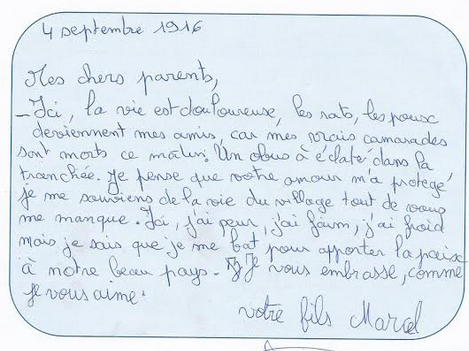 4 septembre 1916
Mes chers parents,
_ Ici, la vie est douloureuse, les rats, les poux
deviennent mes amis, car mes vrais camarades
sont morts ce matin. Un obus à éclaté dans la
tranchée. Je pense que votre amour m'a protégé
Je me souviens de la vie du village tout de vous
me manque. Ici, j'ai peur, j'ai faim, j'ai froid
mais je sais que je me bat pour apporter la paix
à notre beau pays. Je vous embrasse, comme
je vous aime.
votre fils Marcel